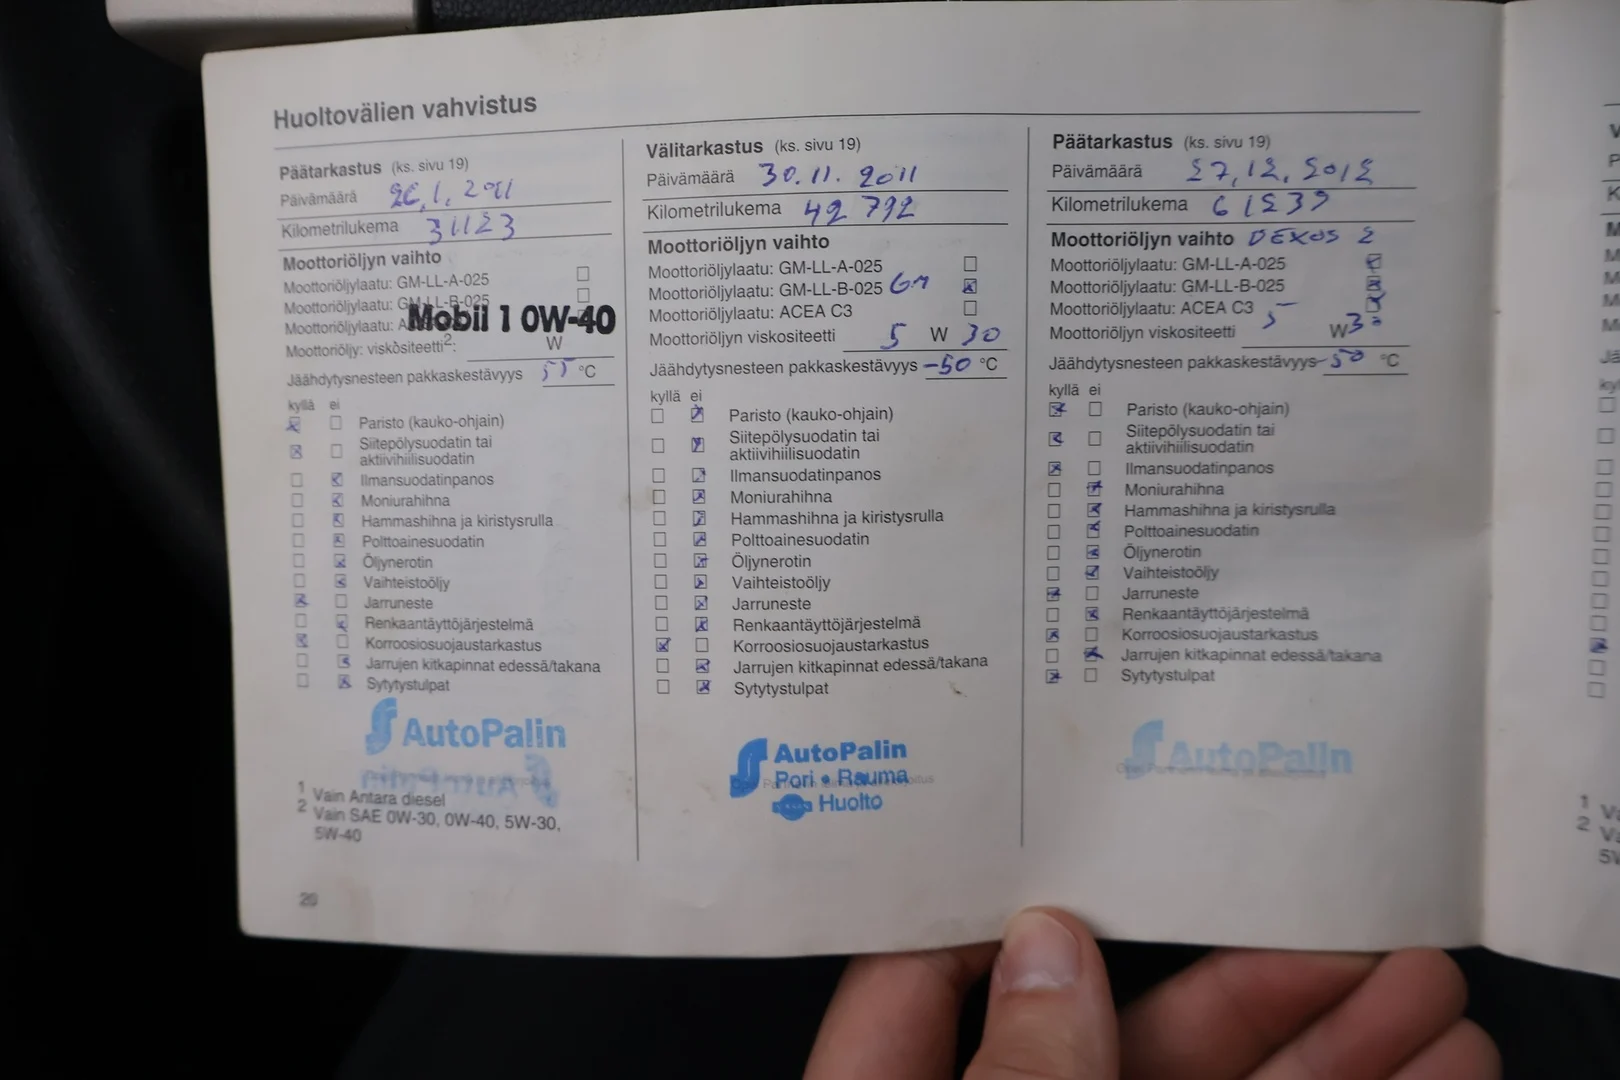 Huoltovälien vahvistus
Päätarkastus (ks. sivu 19)
Päivämäärä 26.1.2011
Kilometrilukema 31123
Moottoriöljyn vaihto
Moottoriöljylaatu: GM-LL-A-025
Moottoriöljylaatu: GM-LL-B-025
Moottoriöljylaatu: A
Mobil 1 0W-40
Moottoriöljy: viskositeetti2: W
Jäähdytysnesteen pakkaskestävyys 55 °C
kyllä ei
Paristo (kauko-ohjain)
Siitepölysuodatin tai
aktiivihiilisuodatin
Ilmansuodatinpanos
Moniurahihna
Hammashihna ja kiristysrulla
Polttoainesuodatin
Öljynerotin
Vaihteistoöljy
Jarruneste
Renkaantäyttöjärjestelmä
Korroosiosuojaustarkastus
Jarrujen kitkapinnat edessä/takana
Sytytystulpat
AutoPalin
1 Vain Antara diesel
2 Vain SAE 0W-30, 0W-40, 5W-30,
5W-40
20
Välitarkastus (ks. sivu 19)
Päivämäärä 30.11.2011
Kilometrilukema 42 792
Moottoriöljyn vaihto
Moottoriöljylaatu: GM-LL-A-025
Moottoriöljylaatu: GM-LL-B-025 GM
Moottoriöljylaatu: ACEA C3
Moottoriöljyn viskositeetti 5 W 30
Jäähdytysnesteen pakkaskestävyys -50 °C
kyllä ei
Paristo (kauko-ohjain)
Siitepölysuodatin tai
aktiivihiilisuodatin
Ilmansuodatinpanos
Moniurahihna
Hammashihna ja kiristysrulla
Polttoainesuodatin
Öljynerotin
Vaihteistoöljy
Jarruneste
Renkaantäyttöjärjestelmä
Korroosiosuojaustarkastus
Jarrujen kitkapinnat edessä/takana
Sytytystulpat
AutoPalin
Pori • Rauma
Huolto
Päätarkastus (ks. sivu 19)
Päivämäärä 27.12.2012
Kilometrilukema 61239
Moottoriöljyn vaihto DEXOS 2
Moottoriöljylaatu: GM-LL-A-025
Moottoriöljylaatu: GM-LL-B-025
Moottoriöljylaatu: ACEA C3
Moottoriöljyn viskositeetti 5 W 30
Jäähdytysnesteen pakkaskestävyys -50 °C
kyllä ei
Paristo (kauko-ohjain)
Siitepölysuodatin tai
aktiivihiilisuodatin
Ilmansuodatinpanos
Moniurahihna
Hammashihna ja kiristysrulla
Polttoainesuodatin
Öljynerotin
Vaihteistoöljy
Jarruneste
Renkaantäyttöjärjestelmä
Korroosiosuojaustarkastus
Jarrujen kitkapinnat edessä/takana
Sytytystulpat
AutoPalin